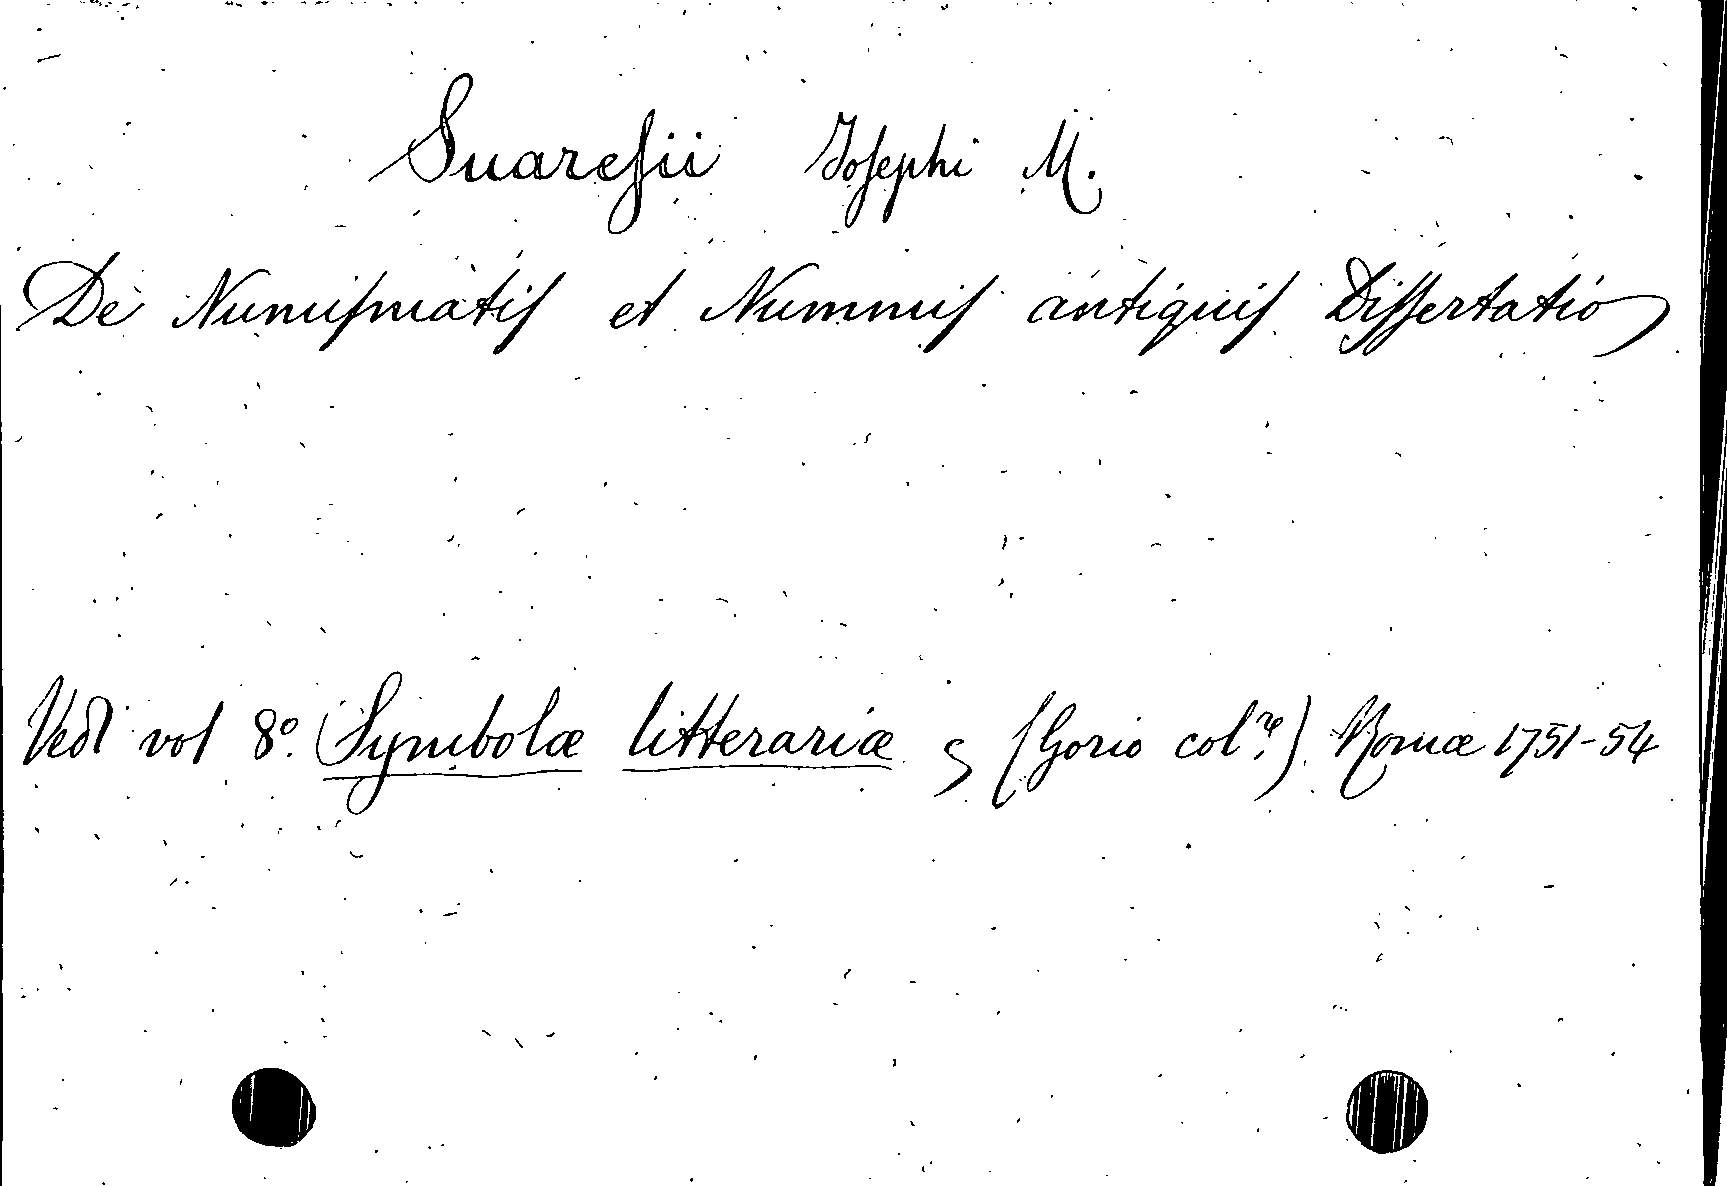 Suaresii Josephi M.
De Numismatis et Nummis antiquis Dissertatio
Vedi vol 8º. Symbolæ litterariæ (Gorio col.re) Romæ 1751-54